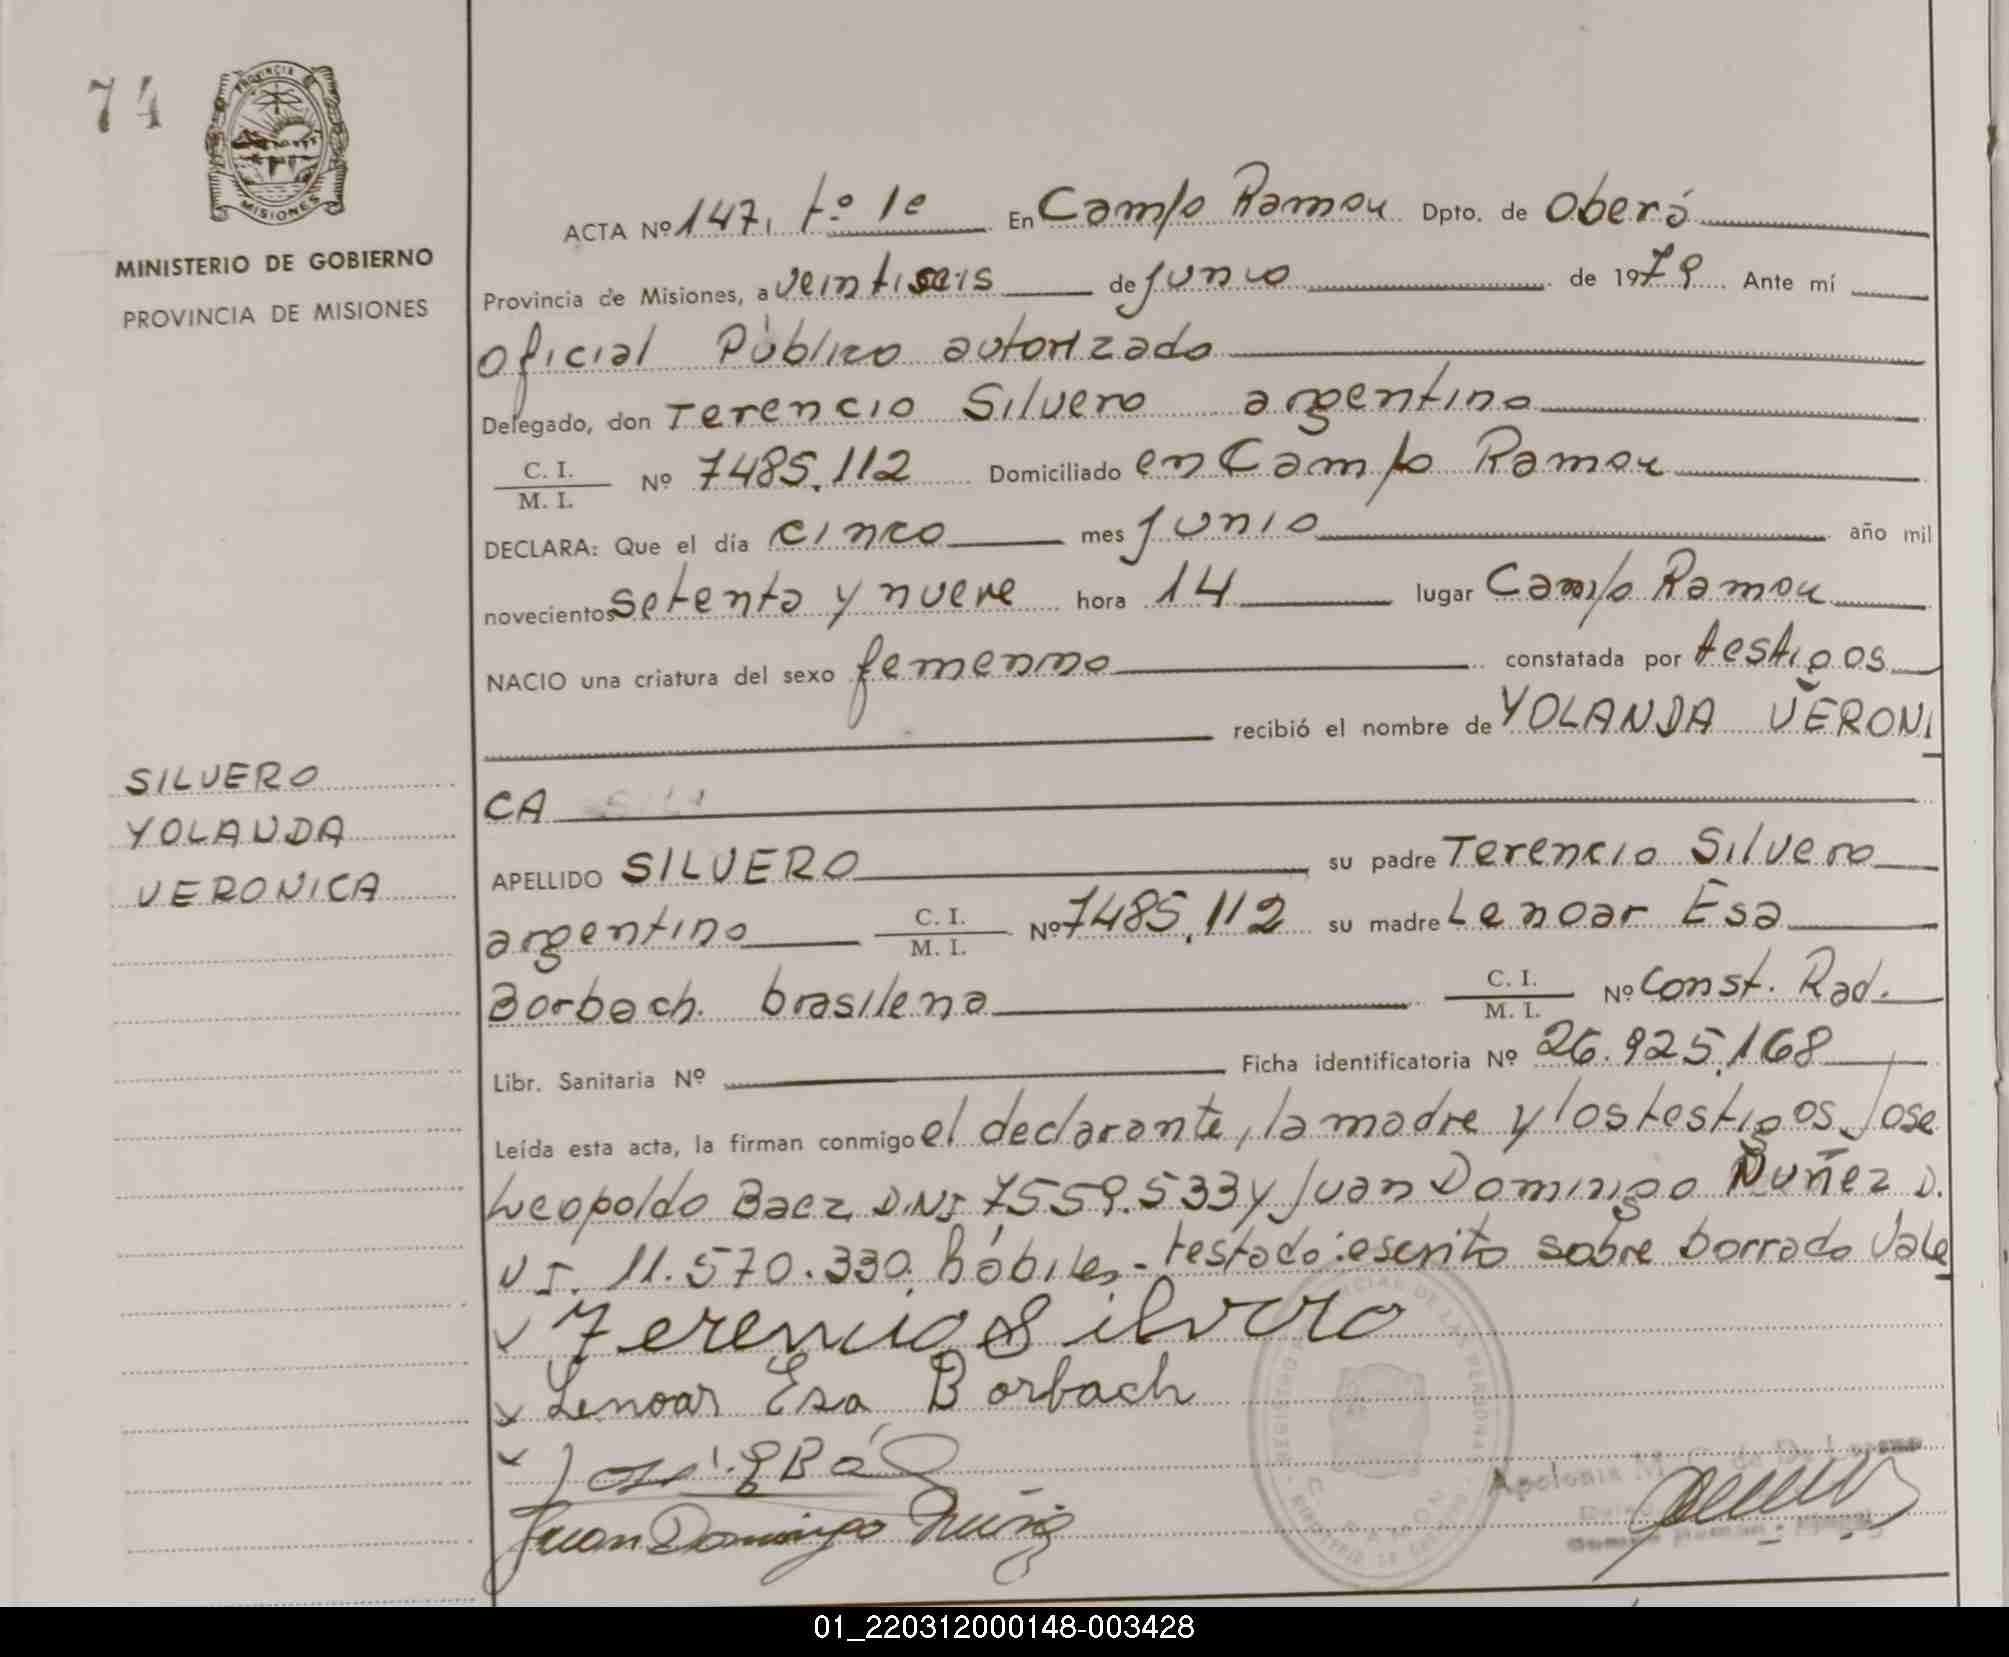 74
PROVINCIA DE
MISIONES
MINISTERIO DE GOBIERNO
PROVINCIA DE MISIONES
ACTA Nº 147, tº 1e En Campo Ramon Dpto. de Oberá
Provincia de Misiones, a veintiseis de junio de 1979 Ante mí
Oficial Público autorizado
Delegado, don Terencio Silvero argentino
C. I.
M. I. Nº 7485.112 Domiciliado en Campo Ramon
DECLARA: Que el día cinco mes junio año mil
novecientos setenta y nueve hora 14 lugar Campo Ramon
NACIO una criatura del sexo femenino constatada por testigos
recibió el nombre de YOLANDA VERONI
CA
SILVERO
YOLANDA
VERONICA
APELLIDO SILVERO su padre Terencio Silvero
argentino C. I.
M. I. Nº 7485.112 su madre Lenoar Esa
Borbach. brasilena C. I.
M. I. Nº Const. Rad.
Libr. Sanitaria Nº Ficha identificatoria Nº 26.925.168
Leída esta acta, la firman conmigo el declarante, la madre y los testigos Jose
Leopoldo Baez DNI 7559.533 y Juan Domingo Nuñez D.
N I. 11.570.330. hábiles.- testado: escrito sobre borrado Vale
Terencio Silvero
Lenoar Esa Borbach
Juan Domingo Nuñez
01_220312000148-003428